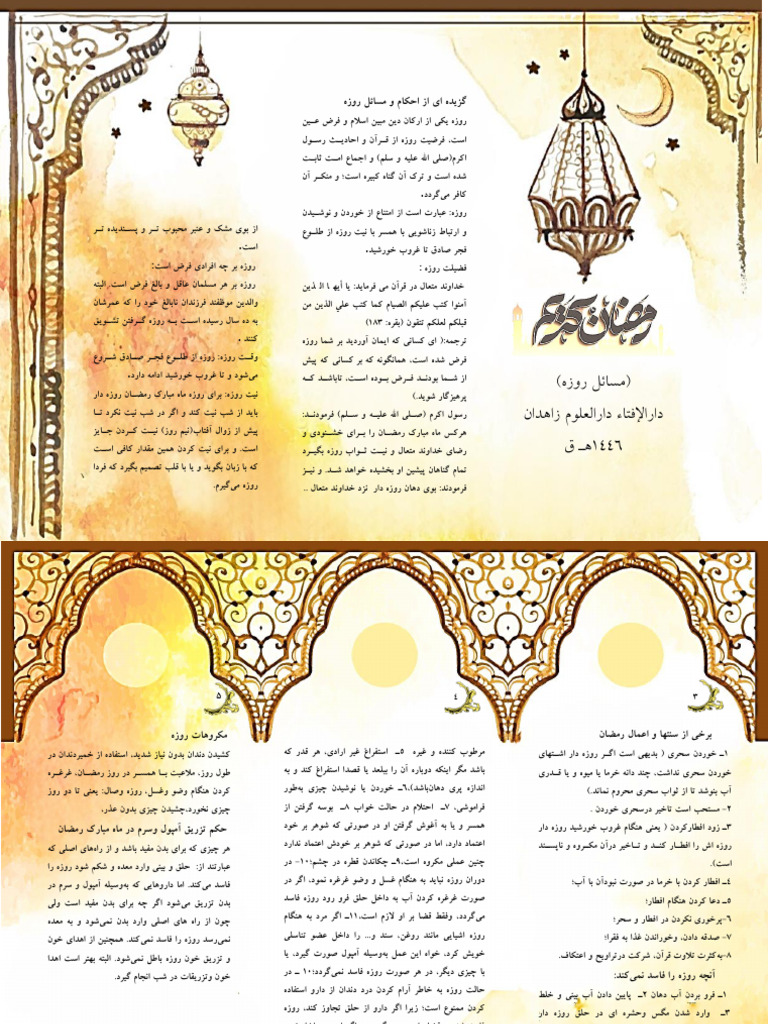 رمضان کریم
(مسائل روزه)
دارالإفتاء دارالعلوم زاهدان
١٤٤٦هـ ق
گزیده ای از احکام و مسائل روزه
روزه یکی از ارکان دین مبین اسلام و فرض عین
است، فرضیت روزه از قرآن و احادیث رسول
اکرم(صلی الله علیه و سلم) و اجماع امت ثابت
شده است و ترک آن گناه کبیره است؛ و منکر آن
کافر می‌گردد.
روزه: عبارت است از امتناع از خوردن و نوشیدن
و ارتباط زناشویی با همسر با نیت روزه از طلوع
فجر صادق تا غروب خورشید.
فضیلت روزه :
خداوند متعال در قرآن می فرماید: یا أیها الذین
آمنوا کتب علیکم الصیام کما کتب علي الذین من
قبلکم لعلکم تتقون (بقره: ۱۸۳)
ترجمه:( ای کسانی که ایمان آوردید بر شما روزه
فرض شده است، همانگونه که بر کسانی که پیش
از شما بودند فرض بوده است، تاباشد که
پرهیزگار شوید.)
رسول اکرم (صلی الله علیه و سلم) فرمودند:
هرکس ماه مبارک رمضان را برای خشنودی و
رضای خداوند متعال و نیت ثواب روزه بگیرد
تمام گناهان پیشین او بخشیده خواهد شد. و نیز
فرمودند: بوی دهان روزه دار نزد خداوند متعال ..
از بوی مشک و عنبر محبوب تر و پسندیده تر
است.
روزه بر چه افرادی فرض است:
روزه بر هر مسلمان عاقل و بالغ فرض است. البته
والدین موظفند فرزندان نابالغ خود را که عمرشان
به ده سال رسیده است به روزه گرفتن تشویق
کنند .
وقت روزه: روزه از طلوع فجر صادق شروع
می‌شود و تا غروب خورشید ادامه دارد.
نیت روزه: برای روزه ماه مبارک رمضان روزه دار
باید از شب نیت کند و اگر در شب نیت نکرد تا
پیش از زوال آفتاب(نیم روز) نیت کردن جایز
است. و برای نیت کردن همین مقدار کافی است
که با زبان بگوید و یا با قلب تصمیم بگیرد که فردا
روزه می‌گیرم.
۳
برخی از سنتها و اعمال رمضان
۱ــ خوردن سحری ( بدیهی است اگر روزه دار اشتهای
خوردن سحری نداشت، چند دانه خرما یا میوه و یا قدری
آب بنوشد تا از ثواب سحری محروم نماند.)
۲- مستحب است تاخیر درسحری خوردن .
۳ــ زود افطارکردن ( یعنی هنگام غروب خورشید روزه دار
روزه اش را افطار کند و تاخیر درآن مکروه و ناپسند
است).
۴ــ افطار کردن با خرما در صورت نبودآن با آب؛
۵ــ دعا کردن هنگام افطار؛
۶-پرخوری نکردن در افطار و سحر؛
۷- صدقه دادن، وخوراندن غذا به فقرا؛
۸-به‌کثرت تلاوت قرآن، شرکت درتراویح و اعتکاف.
آنچه روزه را فاسد نمی‌کند:
۱ــ فرو بردن آب دهان ۲ــ پایین دادن آب بینی و خلط
۳ــ وارد شدن مگس وحشره ای در حلق روزه دار
۴
مرطوب کننده و غیره ۵ــ استفراغ غیر ارادی، هر قدر که
باشد مگر اینکه دوباره آن را ببلعد یا قصدا استفراغ کند و به
اندازه پری دهان‌باشد)،۶ــ خوردن یا نوشیدن چیزی به‌طور
فراموشی، ۷ــ احتلام در حالت خواب ۸ــ بوسه گرفتن از
همسر و یا به آغوش گرفتن او در صورتی که شوهر بر خود
اعتماد دارد، اما در صورتی که شوهر بر خودش اعتماد ندارد
چنین عملی مکروه است،۹ــ چکاندن قطره در چشم؛۱۰- در
دوران روزه نباید به هنگام غسل و وضو غرغره نمود، اگر در
صورت غرغره کردن آب به داخل حلق فرو رود روزه فاسد
می‌گردد، وفقط قضا بر او لازم است،۱۱ــ اگر مرد به هنگام
روزه اشیایی مانند روغن، سند و... را داخل عضو تناسلی
خویش کرد، خواه این عمل به‌وسیله آمپول صورت گیرد، یا
با چیزی دیگر، در هر صورت روزه فاسد نمی‌گردد؛۱۰ ــ در
حالت روزه به خاطر آرام کردن درد دندان از دارو استفاده
کردن ممنوع است؛ زیرا اگر دارو از حلق تجاوز کند، روزه
۵
مکروهات روزه
کشیدن دندان بدون نیاز شدید، استفاده از خمیردندان در
طول روز، ملاعبت با همسر در روز رمضان، غرغره
کردن هنگام وضو وغسل، روزه وصال: یعنی تا دو روز
چیزی نخورد،چشیدن چیزی بدون عذر.
حکم تزریق آمپول وسرم در ماه مبارک رمضان
هر چیزی که برای بدن مفید باشد و از راه‌های اصلی که
عبارتند از: حلق و بینی وارد معده و شکم شود روزه را
فاسد می‌کند. اما داروهایی که به‌وسیله آمپول و سرم در
بدن تزریق می‌شود اگر چه برای بدن مفید است ولی
چون از راه های اصلی وارد بدن نمی‌شود و به معده
نمی‌رسد روزه را فاسد نمی‌کند. همچنین از اهدای خون
و تزریق خون روزه باطل نمی‌شود. البته بهتر است اهدا
خون وتزریقات در شب انجام گیرد.